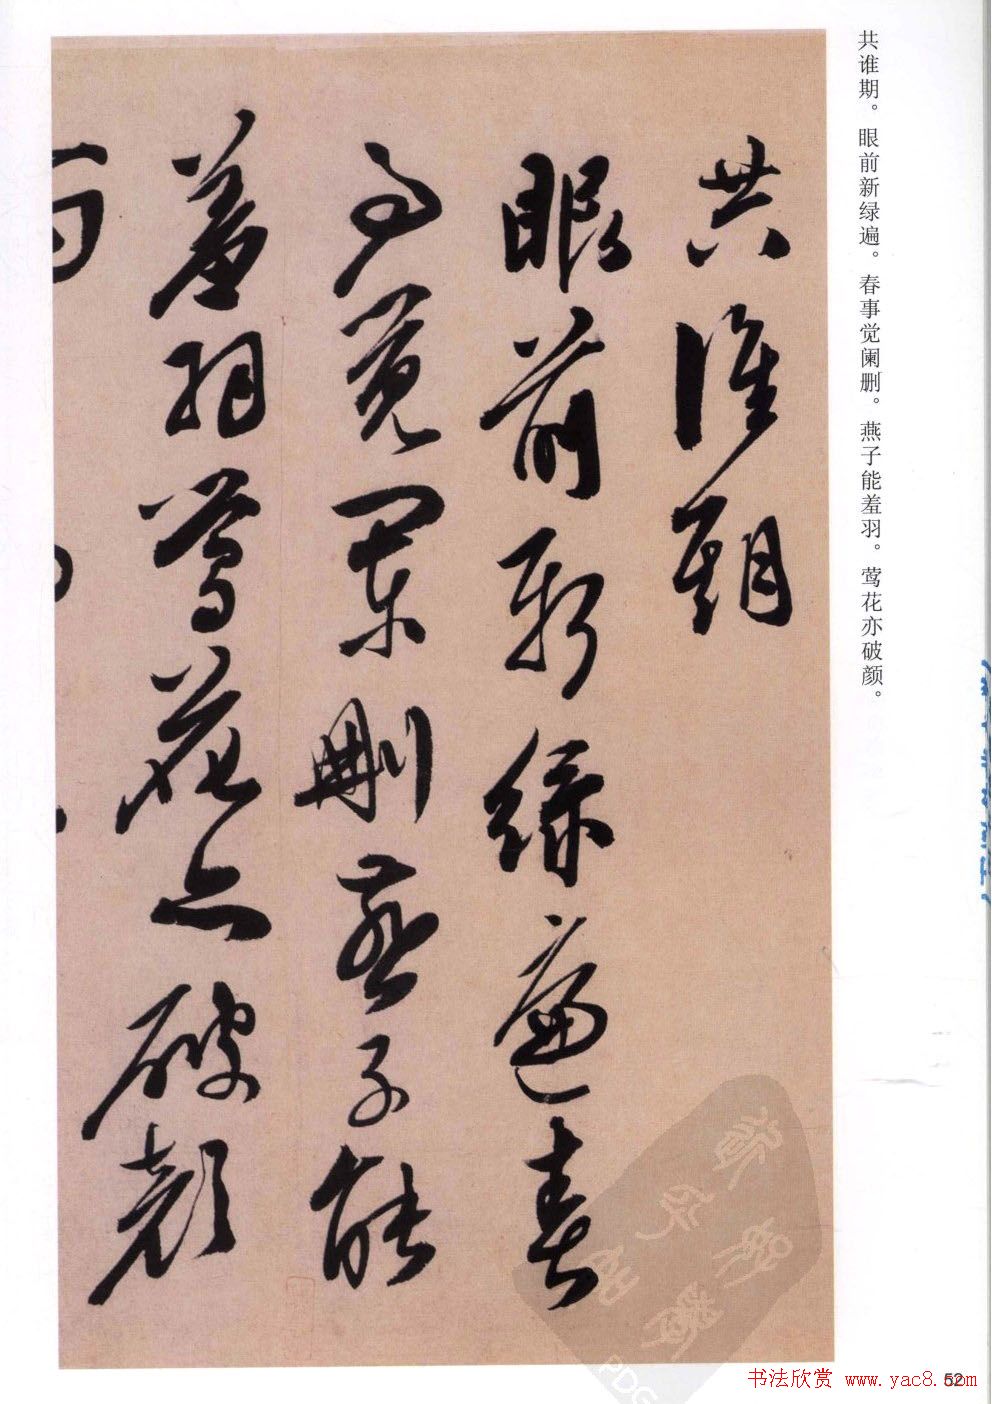 共谁期。眼前新绿遍。春事觉阑删。燕子能羞羽。莺花亦破颜。
共誰期
眼前新綠遍春
事覺闌刪燕子能
羞羽鶯花亦破顏
PDG
书法欣赏 www.yac8.com
52